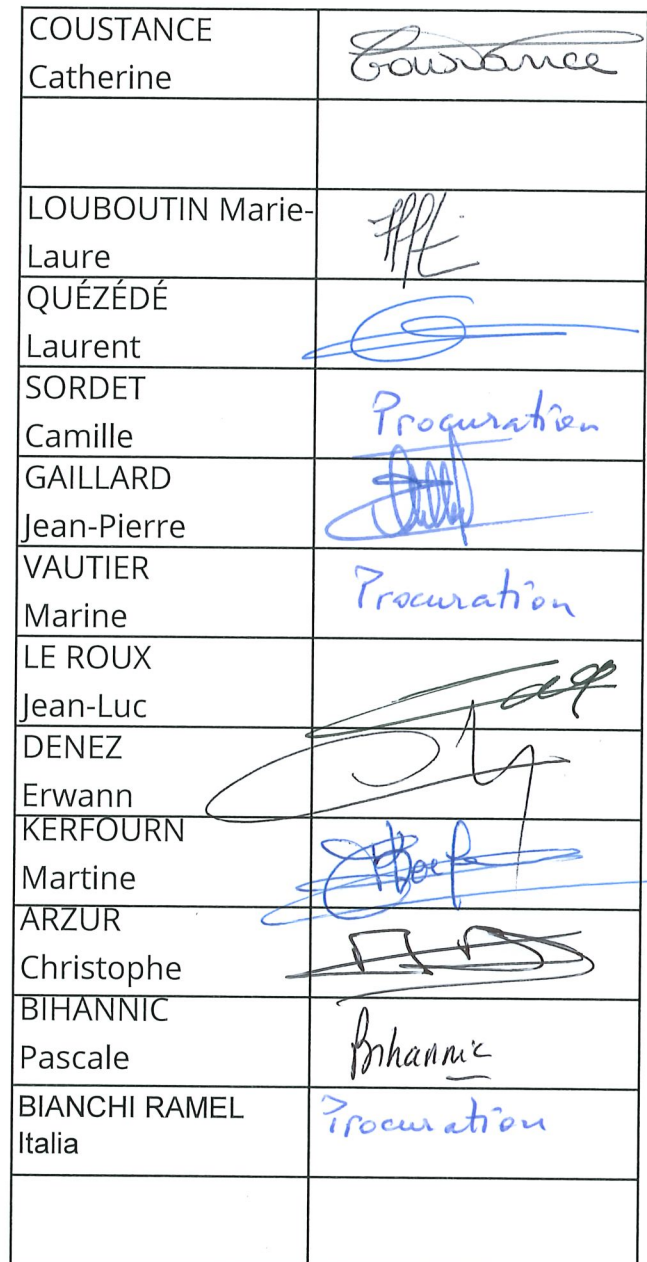 COUSTANCE
Catherine
Coustance
LOUBOUTIN Marie-
Laure
QUÉZÉDÉ
Laurent
SORDET
Camille
Procuration
GAILLARD
Jean-Pierre
VAUTIER
Marine
Procuration
LE ROUX
Jean-Luc
DENEZ
Erwann
KERFOURN
Martine
ARZUR
Christophe
BIHANNIC
Pascale
Bihannic
BIANCHI RAMEL
Italia
Procuration